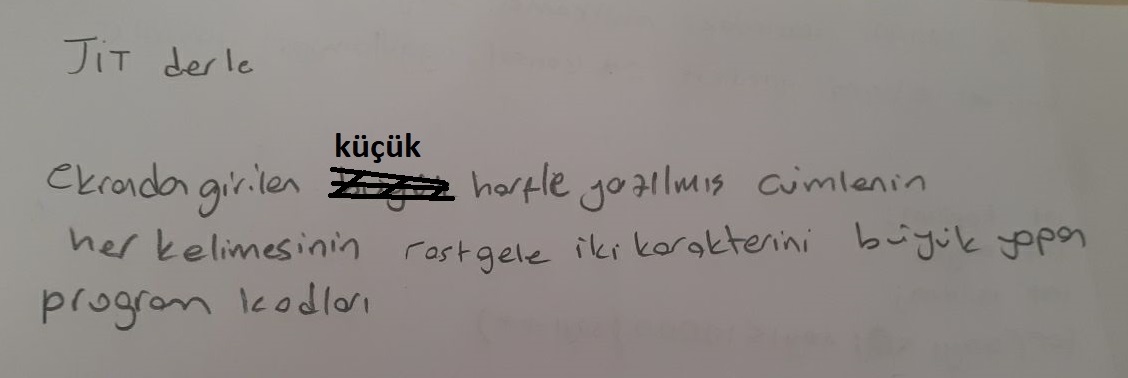 JİT derle
küçük
Ekrandan girilen harfle yazılmış cümlenin
her kelimesinin rastgele iki karakterini büyük yapan
program kodları